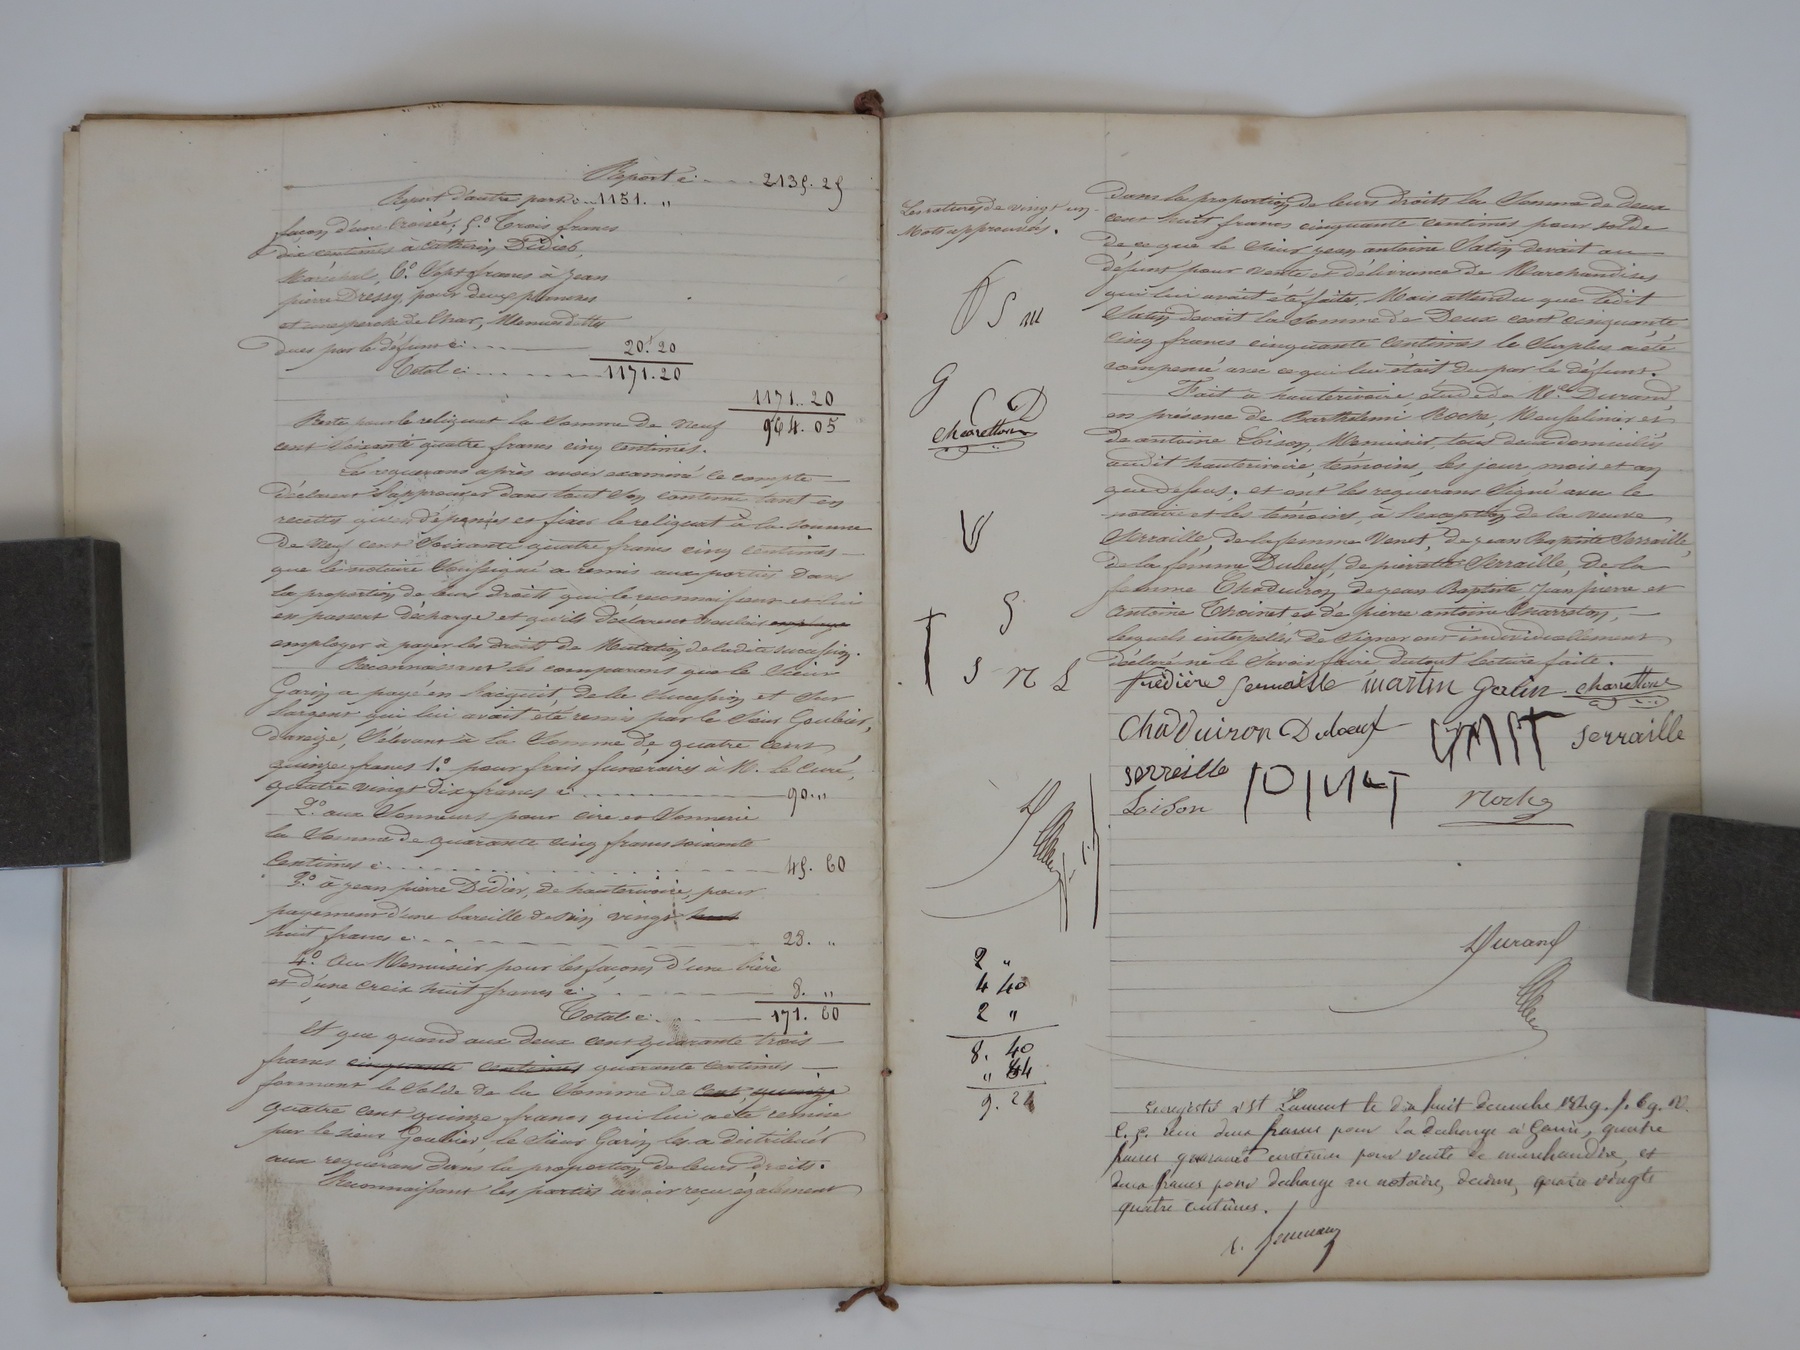 Report ci 2135. 25
Report d'autre part ci 1151. "
façon d'une croisée, 5° Trois francs
dix centimes à Catherin Didier,
Maréchal, 6° Sept francs à jean
pierre Dressy, pour deux
et une perche de Char, Menues dettes
dues par le défunt ci 20. 20
Total ci 1171. 20
1171. 20
Reste pour le reliquat la Somme de Neuf 964. 05
cent Soixante quatre francs cinq centimes.
Les requerans après avoir examiné le compte
déclarent l'approuver dans tout Son contenu tant en
recettes qu'en dépenses et fixer le reliquat à la Somme
de Neuf cent Soixante quatre francs cinq centimes
que le notaire Soussigné a remis aux parties dans
la proportion de leurs droits qui le reconnaissent et lui
en passent décharge et qu'ils déclarent vouloir
employer à payer les droits de Mutation de ladite succession.
Reconnaissant les comparans que le Sieur
Garin a payé en l'acquit de la Succession et Sur
l'argent qui lui avait été remis par le Sieur Goubier,
d'areize, S'élevant à la Somme de quatre cent
quinze francs 1.° pour frais funéraires à M. le Curé,
quatre vingt dix francs ci 90. "
2.° aux Sonneurs pour cire et Sonnerie
la Somme de quarante cinq francs soixante
Centimes ci 45. 60
3.° à jean pierre Didier, de hauterivoire, pour
payement d'une bareille de vin vingt huit
huit francs ci 28. "
4.° Au Menuisier pour les façons d'une bière
et d'une croix huit francs ci 8. "
Total ci 171. 60
Et que quand aux deux cent quarante trois
francs cinquante centimes quarante centimes
formant le Solde de la Somme de cent quinze
quatre cent quinze francs qui lui a été remise
par le sieur Goubier, le Sieur Garin les a distribués
aux requérans dans la proportion de leurs droits.
Reconnaissant les parties avoir reçu également
Les ratures de vingt un
Mots approuvées.
S m
G
C D
charetton
V
S
S M L
2 "
4 40
2 "
8. 40
" 84
9. 24
dans la proportion de leurs droits la Somme de deux
cent huit francs cinquante centimes pour solde
de ce que le Sieur jean antoine Satin devait au
défunt pour vente et délivrance de Marchandises
qui lui avait été faites, Mais attendu que ledit
Satin devait la Somme de Deux cent cinquante
cinq francs cinquante centimes le Surplus a été
compensé avec ce qui lui était du par le défunt.
Fait à hauterivoire, étude de M.e Durand
en présence de Barthélemi Roche, et
de antoine Loison, Menuisier, tous deux domiciliés
audit hauterivoire, témoins, les jour mois et an
que dessus. et ont les requerans Signé avec le
notaire et les témoins, à l'exception de la veuve
Serraille, de la femme Venet, de jean Baptiste Serraille,
de la femme Dubeuf, de pierrette Serraille, de la
femme Chaduiron, de jean Baptiste, jean pierre et
antoine Thoinet et de pierre antoine Charreton,
lesquels interpellés de Signer ont individuellement
déclaré ne le Savoir faire dutout lecture faite.
frédière Serraille martin garin charetton
Chaduiron Duboeuf serraille
serreille
Loison Roche
Durand
Enregistré à St Laurent le dix huit decembre 1849. f. 69. V.
C. 5. Reçu deux francs pour la décharge à Garin, quatre
francs quarante centimes pour vente de marchandise, et
deux francs pour décharge au notaire, décime, quatre vingts
quatre centimes.